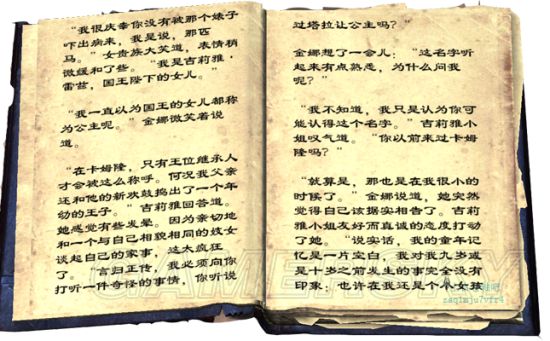 “我很庆幸你没有被那个婊子
吓出病来，我是说，那匹
马。”女贵族大笑道，表情稍
微缓和了些。“我是吉莉雅·
雷兹，国王陛下的女儿。”
“我一直以为国王的女儿都称
为公主呢。”金娜微笑着说
道。
“在卡姆隆，只有王位继承人
才会被这么称呼。何况我父亲
还和他的新欢鼓捣出了一个年
幼的王子。”吉莉雅回答道。
她感觉有些发晕。因为亲切地
和一个与自己相貌相同的妓女
谈起自己的家事，这太疯狂
了。“言归正传，我必须向你
打听一件奇怪的事情，你听说
过塔拉让公主吗？”
金娜想了一会儿：“这名字听
起来有点熟悉，为什么问我
呢？”
“我不知道，我只是认为你可
能认得这个名字。”吉莉雅小
姐叹气道。“你以前来过卡姆
隆吗？”
“就算是，那也是在我很小的
时候了。”金娜说道，她突然
觉得自己该据实相告了。吉莉
雅小姐友好而真诚的态度打动
了她。“说实话，我的童年记
忆是一片空白。我对我九岁或
是十岁之前发生的事完全没有
印象；也许在我还是个小女孩
GAMERSKY
zaq1mju7vfr4